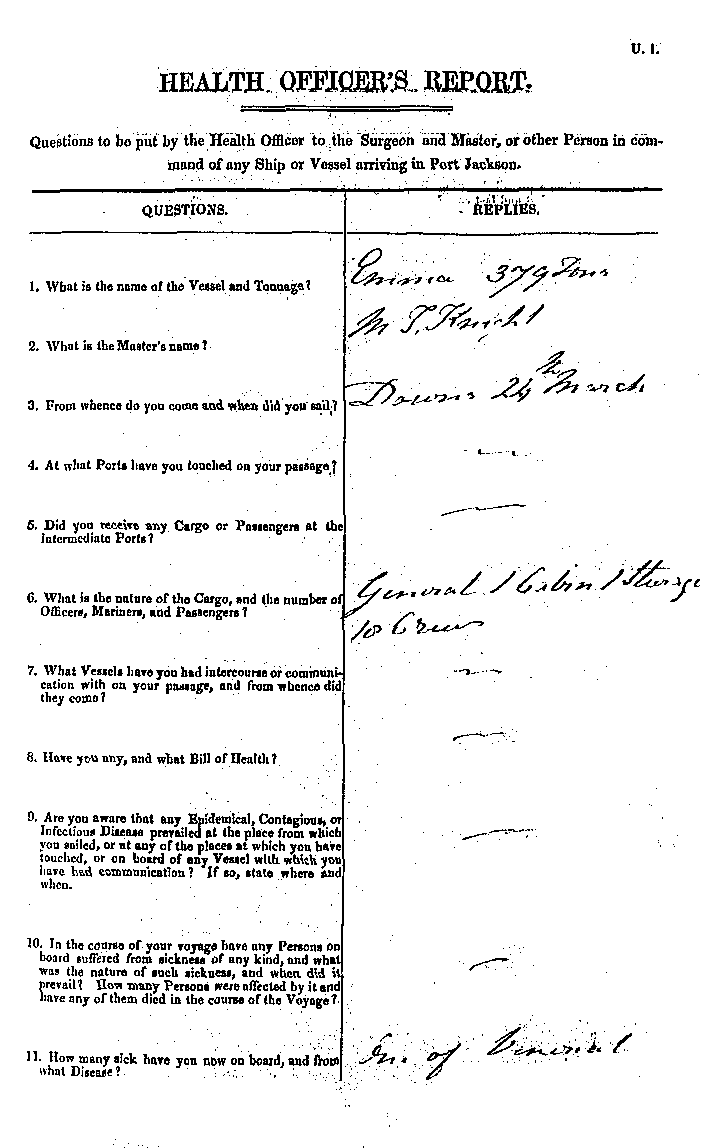 U. 1.
HEALTH OFFICER'S REPORT.
Questions to be put by the Health Officer to the Surgeon and Master, or other Person in com-
mand of any Ship or Vessel arriving in Port Jackson.
QUESTIONS.
REPLIES.
1. What is the name of the Vessel and Tonnage?
Emma 379 Tons
2. What is the Master's name?
M T. Knight
3. From whence do you come and when did you sail?
Downs 24th March
4. At what Ports have you touched on your passage?
—
5. Did you receive any Cargo or Passengers at the
Intermediate Ports?
—
6. What is the nature of the Cargo, and the number of
Officers, Mariners, and Passengers?
General 1 Cabin 1 Steerage
18 Crew
7. What Vessels have you had intercourse or communi-
cation with on your passage, and from whence did
they come?
—
8. Have you any, and what Bill of Health?
—
9. Are you aware that any Epidemical, Contagious, or
Infectious Disease prevailed at the place from which
you sailed, or at any of the places at which you have
touched, or on board of any Vessel with which you
have had communication? If so, state where and
when.
—
10. In the course of your voyage have any Persons on
board suffered from sickness of any kind, and what
was the nature of such sickness, and when did it
prevail? How many Persons were affected by it and
have any of them died in the course of the Voyage?
—
11. How many sick have you now on board, and from
what Disease?
of Venereal